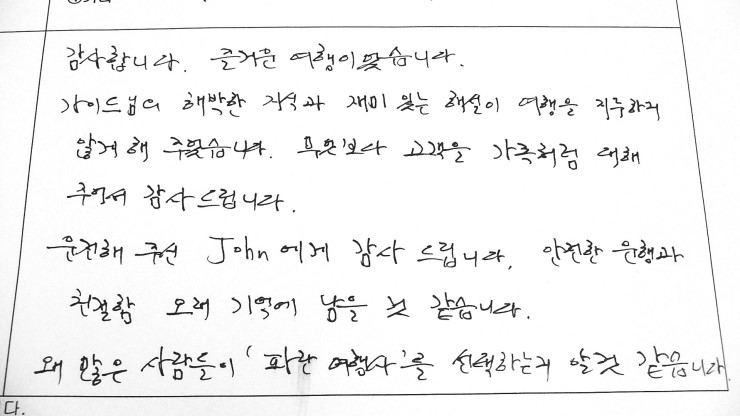 감사합니다. 즐거운 여행이였습니다.
가이드님의 해박한 지식과 재미 있는 해설이 여행을 지루하지
않게 해 주었습니다. 무엇보다 고객을 가족처럼 대해
주어서 감사드립니다.
운전해 주신 John에게 감사 드립니다. 안전한 운행과
친절함 오래 기억에 남을 것 같습니다.
왜 많은 사람들이 '파란 여행사'를 선택하는지 알것 같습니다.
다.